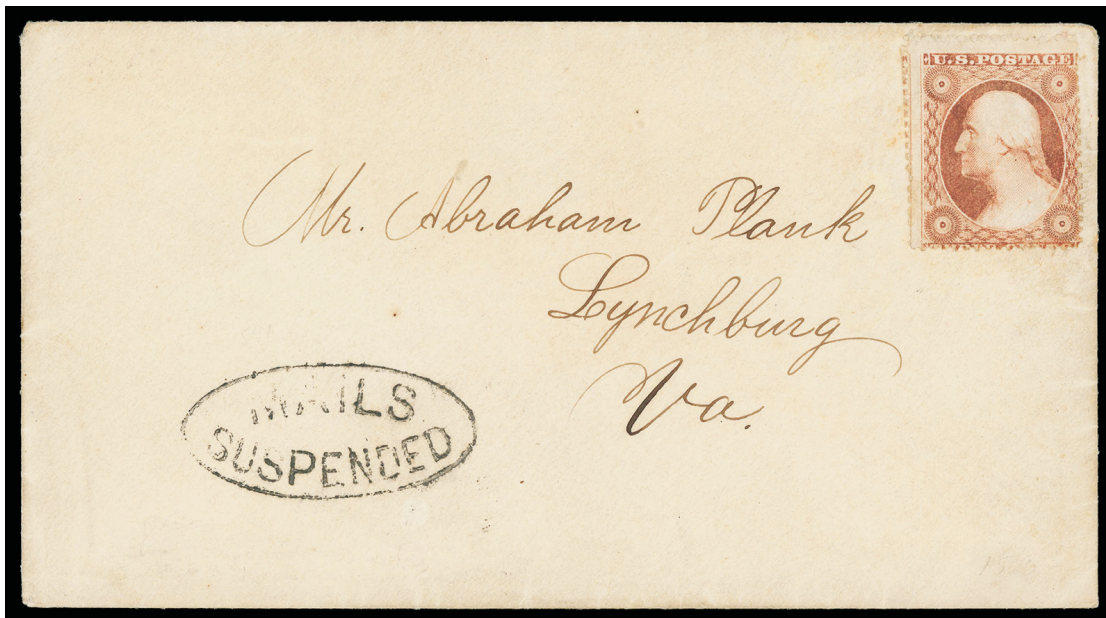 U.S. POSTAGE
Mr. Abraham Plank
Lynchburg
Va.
MAILS
SUSPENDED